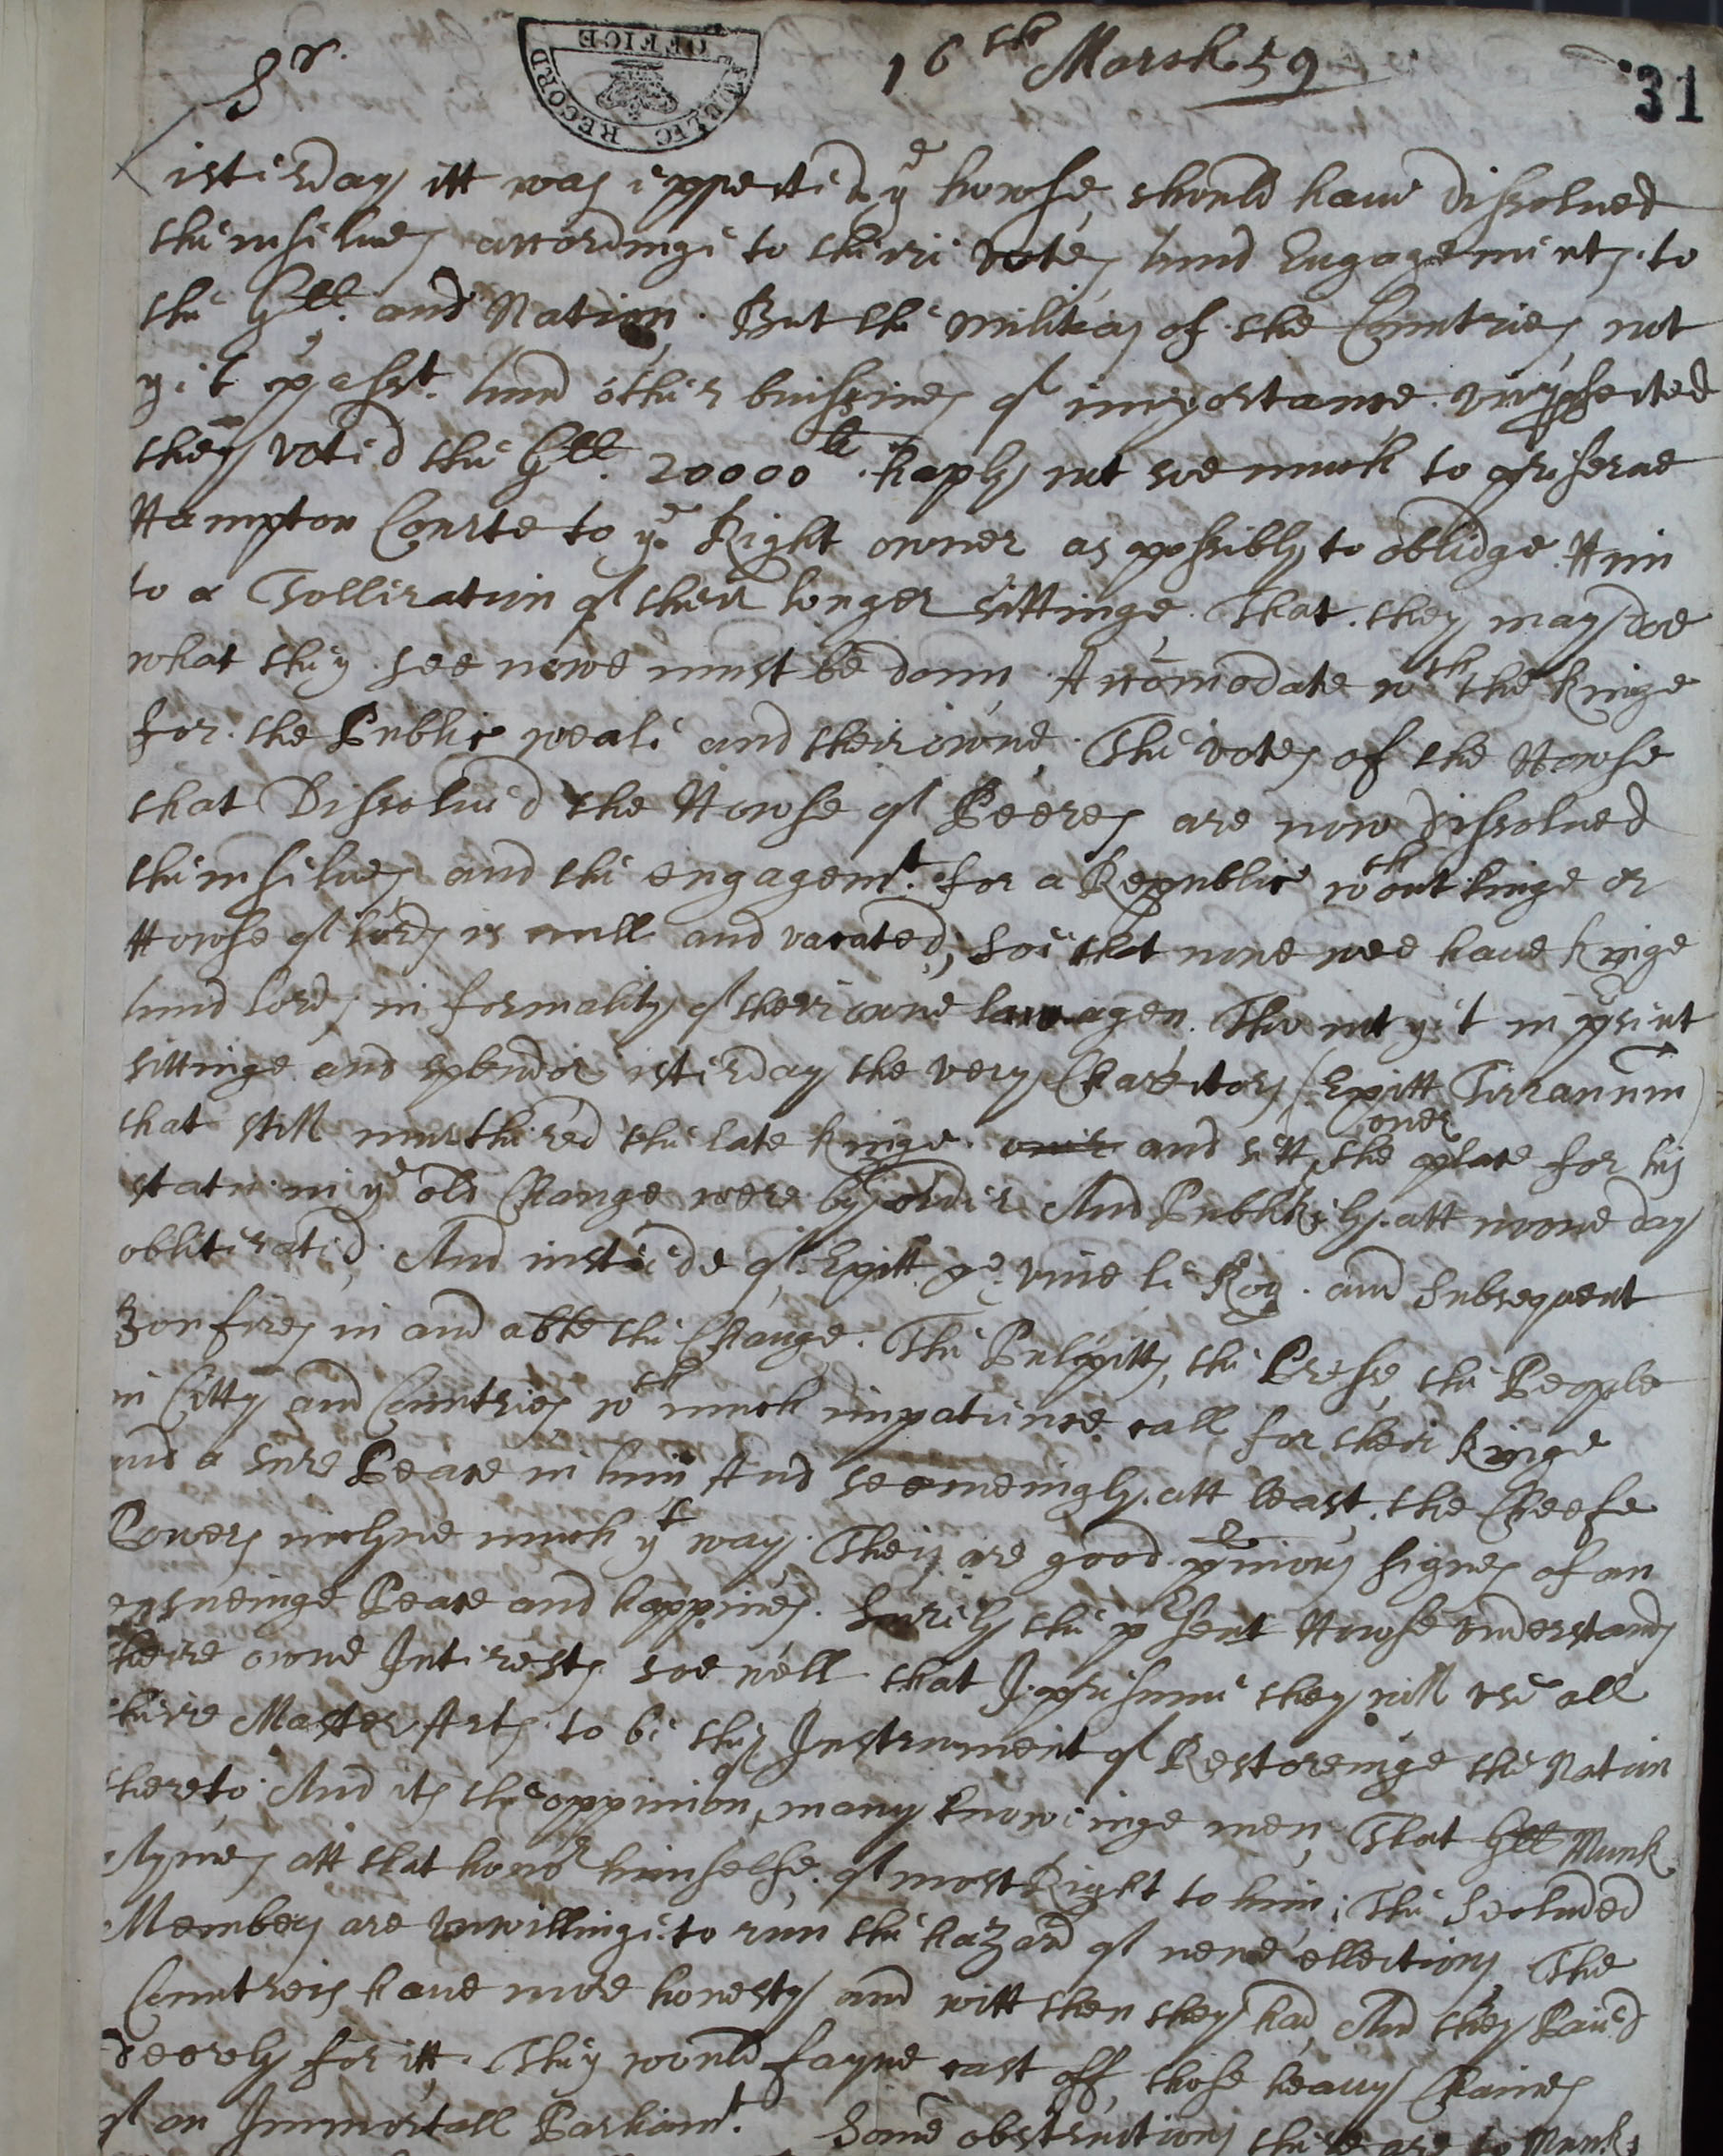 Sr. 16th March 59 31
PUBLIC RECORD OFFICE
isterday itt was exspected ye howse should have dissolued
themselues accordinge to their votes hund Engagements to
the Gll. and Nation. But the militias of the Countries not
yet past. hund other buissines of importance vnperfected
they voted the Gll. 20000li haply not soe much to preserue
Hampton Courte to ye Right owner as possibly to oblidge Him
to a Tolleration of their longer sittinge. That they may doe
what they see nowe must be donn, Accomodate wth the Kinge
for the Public weale and their owne. The votes of the Howse
that Dissolue'd the Howse of Peeres are now dissolued
themselues and the engagemt. for a Republic wthout kinge or
Howse of lords is null and vacated; Soe that nowe wee haue Kinge
hund lords in formality of their owne law agen. Tho not yet in print
sittinge and splendor isterday the very Charectors (Exitt Tirannum)
that still murthered the late Kinge. and sett ouer the place for his
statue in ye old Change were by order And Publikely att noone day
obliterated. And insteede of Exitt &c. viue le Roy. and Subsequent
Bonfires in and atte the Change. The Pulpitts, the Presse, the People
in Citty and Countries wth much impatience call for their Kinge
and a sure Peace in him And seemeingly att least, the Cheefe
Powers inclyne much yt way. Theis are good preuious signes of an
ensueinge Peace and happines. Surely the present Howse vnderstands
theire owne Interests soe well that I presume they will vse all
theire Master Arts to be the Instrument of Restoreinge the Nation
thereto. And its the oppinion of many knoweinge men, That Gll Munk
Aymes att that honor himselfe of most Right to him; The Secluded
Members are vnwillinge to run the hazard of newe ellections, The
Countreis haue more honesty and witt then they had, And they Paid
deerely for itt. They would fayne cast off those heauy Chaines
of an Immortall Parliamt. Some obstructions there are to Munks